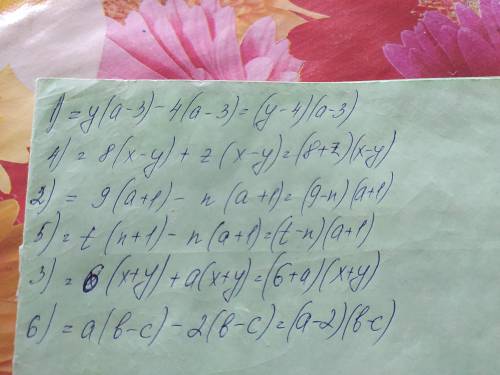 1) = y(a-3)-4(a-3)=(y-4)(a-3)
4) = 8(x-y)+z(x-y)=(8+z)(x-y)
2) = 9(a+1)-n(a+1)=(9-n)(a+1)
5) = t(n+1)-n(a+1)=(t-n)(a+1)
3) = 6(x+y)+a(x+y)=(6+a)(x+y)
6) = a(b-c)-2(b-c)=(a-2)(b-c)